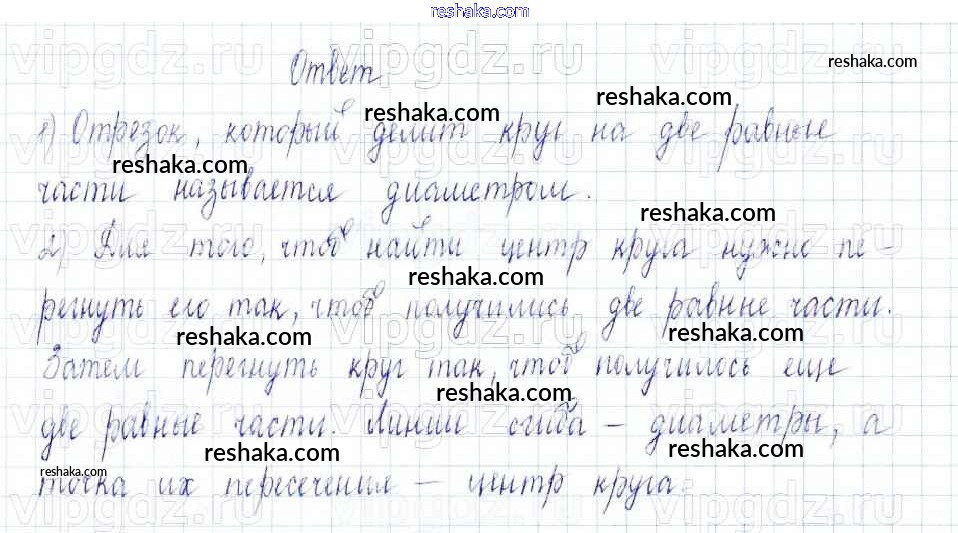 reshaka.com
vipgdz.ru vipgdz.ru vipgdz.ru
Ответ
reshaka.com
reshaka.com
reshaka.com
1) Отрезок, который делит круг на две равные
reshaka.com
части называется диаметром.
reshaka.com
vipgdz.ru vipgdz.ru vipgdz.ru
2) Для того, чтоб найти центр круга нужно пе-
reshaka.com
регнуть его так, чтоб получились две равные части.
reshaka.com
reshaka.com
Затем перегнуть круг так, чтоб получилось еще
reshaka.com
две равные части. Линии сгиба – диаметры, а
reshaka.com
reshaka.com
reshaka.com
точка их пересечения – центр круга.
vipgdz.ru vipgdz.ru vipgdz.ru